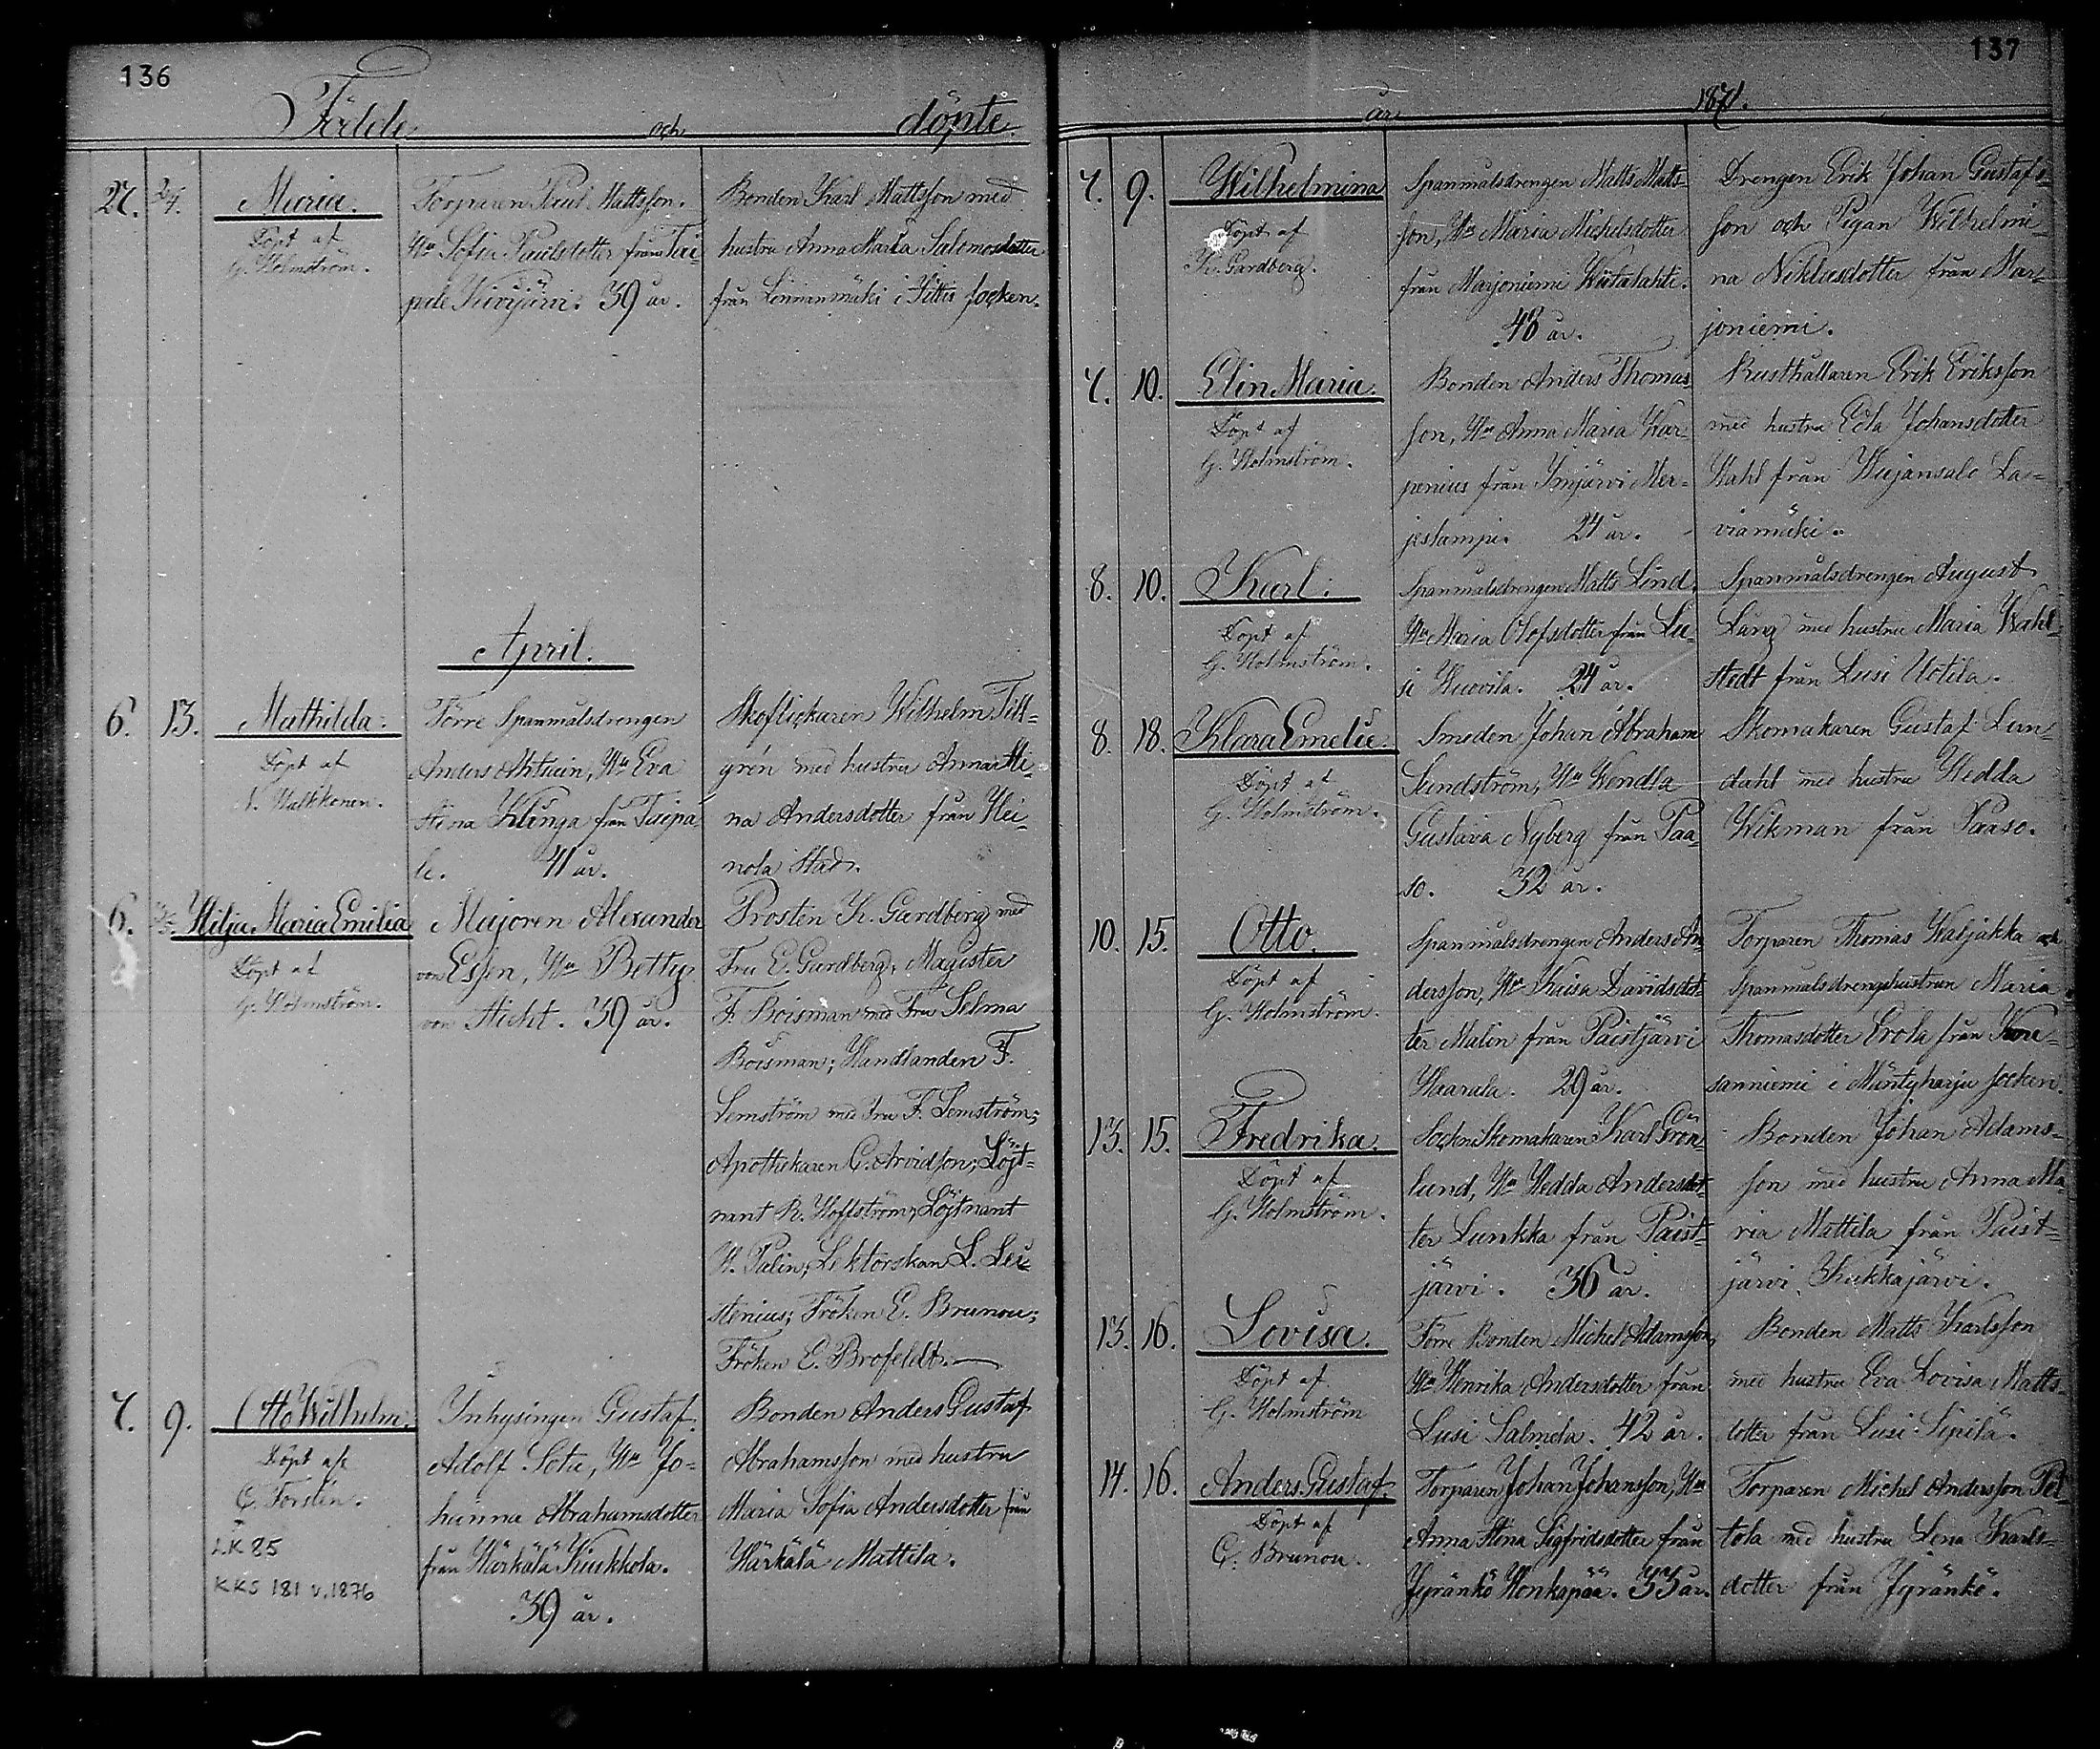 136
Födde och döpte
27. 2/4. Maria.
Döpt af
G. Holmström.
Torparen Paul Mattsson.
Hu Sofia Paulsdotter från Tai-
pale Kivijärvi. 39 år.
Bonden Karl Mattsson med
hustru Anna Maria Salomonsdotter
från Linnanmäki i Jittis socken.
April.
6. 13. Mathilda.
Döpt af
N. Malkkonen.
Förre Spanmålsdrengen
Anders Ahtiain, Hu Eva
Stina Klinga från Taipa-
le. 41 år.
Skoflickaren Wilhelm Till-
grén med hustru Anna Mi-
na Andersdotter från Hei-
nola Stad.
6. Hilja Maria Emilia
Döpt af
G. Holmström.
Majoren Alexander
von Essen, Hu Betty
von Hicht. 39 år.
Prosten K. Gardberg med
Fru E. Gardberg, Magister
F. Boisman med Fru Selma
Boisman; Handlanden F.
Lemström med Fru F. Lemström;
Apothekaren C. Arvidson; Löjt-
nant R. Hoffström, Löjtnant
W. Palin; Lektorskan L. Lei-
stenius; Fröken E. Brunou;
Fröken E. Brofeldt.
7. 9. Otto Wilhelm.
Döpt af
C. Forstén.
LK 85
KKS 181 v. 1876
Inhysingen Gustaf
Adolf Sota, Hu Jo-
hanna Abrahamsdotter
från Härkälä Kiukkola.
39 år.
Bonden Anders Gustaf
Abrahamsson med hustru
Maria Sofia Andersdotter från
Härkälä Mattila.
137
år 1871.
7. 9. Wilhelmina
Döpt af
K. Gardberg.
Spanmålsdrengen Matts Matts-
son, Hu Maria Michelsdotter
från Marjoniemi Wiitalahti.
48 år.
Drengen Erik Johan Gustafs-
son och Pigan Wilhelmi-
na Niklasdotter från Mar-
joniemi.
7. 10. Elin Maria.
Döpt af
G. Holmström.
Bonden Anders Thomas-
son, Hu Anna Maria Kar-
penius från Imjärvi Mer-
jestampi. 24 år.
Rusthållaren Erik Eriksson
med hustru Edla Johansdotter
Wahl från Hujansalo La-
viamäki.
8. 10. Karl.
Döpt af
G. Holmström.
Spanmålsdrengen Matts Lind,
Hu Maria Olofsdotter från Lu-
si Huovila. 24 år.
Spanmålsdrengen August
Lång med hustru Maria Wahl-
stedt från Lusi Uotila.
8. 18. Klara Emelie.
Döpt af
G. Holmström.
Smeden Johan Abraham
Sundström, Hu Wendla
Gustava Nyberg från Paa-
so. 32 år.
Skomakaren Gustaf Lun-
dahl med hustru Hedda
Wikman från Paaso.
10. 15. Otto.
Döpt af
G. Holmström.
Spanmålsdrengen Anders An-
dersson, Hu Kaisa Davidsdot-
ter Malin från Paistjärvi
Haarala. 29 år.
Torparen Thomas Wasjakka och
Spanmålsdrengshustrun Maria
Thomasdotter Erola från Kou-
sanniemi i Mäntyharju socken.
13. 15. Fredrika.
Döpt af
G. Holmström.
Sockneskomakaren Karl Grön-
lund, Hu Hedda Andersdot-
ter Lunkka från Paist-
järvi. 36 år.
Bonden Johan Adams-
son med hustru Anna Ma-
ria Mattila från Paist-
järvi Kukkajärvi.
13. 16. Lovisa.
Döpt af
G. Holmström
Förre Bonden Michel Adamsson,
Hu Henrika Andersdotter från
Lusi Salmela. 42 år.
Bonden Matts Karlsson
med hustru Eva Lovisa Matts-
dotter från Lusi Sipilä.
14. 16. Anders Gustaf.
Döpt af
C. Brunou.
Torparen Johan Johansson, Hu
Anna Stina Sigfridsdotter från
Jyränkö Honkapää. 33 år.
Torparen Michel Andersson Pel-
tola med hustru Lena Karls-
dotter från Jyränkö.